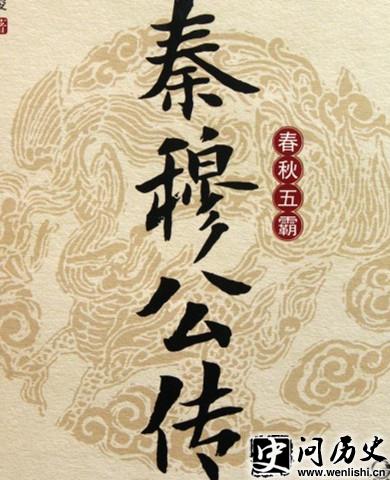 秦穆公传
春秋五霸
史问历史
www.wenlishi.cn